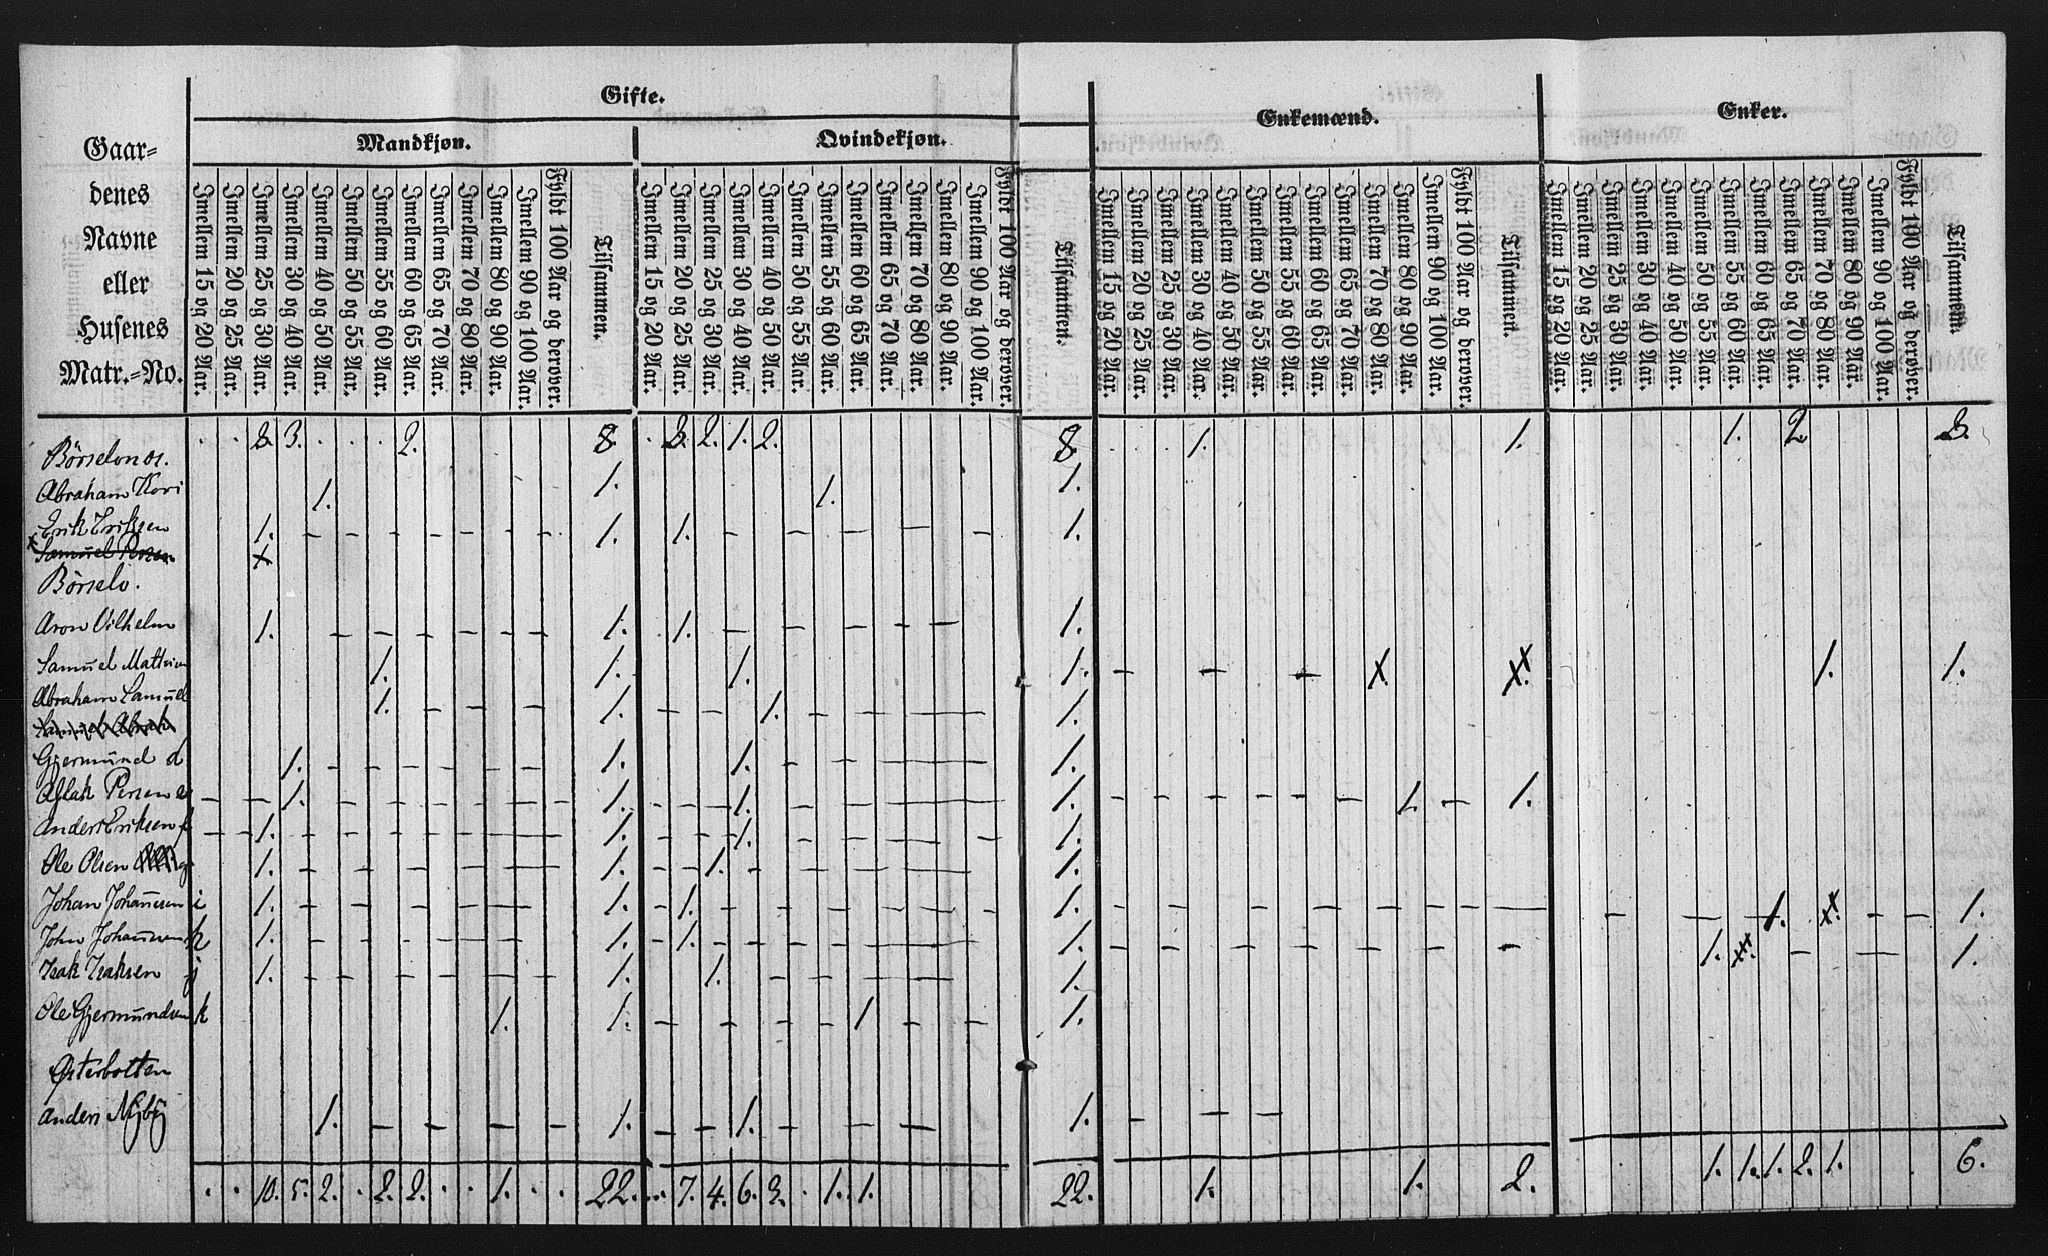 Gifte.
Enkemænd.
Enker.
Mandkjøn.
Qvindekjøn.
Gaar-
denes
Navne
eller
Husenes
Matr.-No.
Imellem 15 og 20 Aar.
Imellem 20 og 25 Aar.
Imellem 25 og 30 Aar.
Imellem 30 og 40 Aar.
Imellem 40 og 50 Aar.
Imellem 50 og 55 Aar.
Imellem 55 og 60 Aar.
Imellem 60 og 65 Aar.
Imellem 65 og 70 Aar.
Imellem 70 og 80 Aar.
Imellem 80 og 90 Aar.
Imellem 90 og 100 Aar.
Fyldt 100 Aar og derover.
Tilsammen.
Imellem 15 og 20 Aar.
Imellem 20 og 25 Aar.
Imellem 25 og 30 Aar.
Imellem 30 og 40 Aar.
Imellem 40 og 50 Aar.
Imellem 50 og 55 Aar.
Imellem 55 og 60 Aar.
Imellem 60 og 65 Aar.
Imellem 65 og 70 Aar.
Imellem 70 og 80 Aar.
Imellem 80 og 90 Aar.
Imellem 90 og 100 Aar.
Fyldt 100 Aar og derover.
Tilsammen.
Imellem 15 og 20 Aar.
Imellem 20 og 25 Aar.
Imellem 25 og 30 Aar.
Imellem 30 og 40 Aar.
Imellem 40 og 50 Aar.
Imellem 50 og 55 Aar.
Imellem 55 og 60 Aar.
Imellem 60 og 65 Aar.
Imellem 65 og 70 Aar.
Imellem 70 og 80 Aar.
Imellem 80 og 90 Aar.
Imellem 90 og 100 Aar.
Fyldt 100 Aar og derover.
Tilsammen.
Imellem 15 og 20 Aar.
Imellem 20 og 25 Aar.
Imellem 25 og 30 Aar.
Imellem 30 og 40 Aar.
Imellem 40 og 50 Aar.
Imellem 50 og 55 Aar.
Imellem 55 og 60 Aar.
Imellem 60 og 65 Aar.
Imellem 65 og 70 Aar.
Imellem 70 og 80 Aar.
Imellem 80 og 90 Aar.
Imellem 90 og 100 Aar.
Fyldt 100 Aar og derover.
Tilsammen.
3. 3. 2. 8. 3. 2. 1. 2. 8. 1. 1. 1. 2 3.
Abraham Kori 1. 1. 1. 1.
Erik Eriksen 1. 1. 1. 1.
x Samuel Persen x
Börselv.
Aron Vilhelm 1. 1. 1. 1.
Samuel 1. 1. 1. 1. x. xx. 1. 1.
Abraham Samuel 1. 1. 1. 1.
Samuel Abrah
Gjermund d 1. 1. 1. 1.
Aslak Persen e 1. 1. 1. 1. 1. 1.
Anders Eriksen f 1. 1. 1. 1.
Ole Olsen g 1. 1. 1. 1.
Johan Johannesen i 1. 1. 1. 1. 1. xx. 1.
John h 1. 1. 1. 1. 1. xxx. 1.
Isak Isaksen j 1. 1. 1. 1.
Ole Gjermundsen k 1. 1. 1. 1.
Østerbotten
Anders Nÿbÿ 1. 1. 1. 1.
10. 5. 2. 2. 2. 1. 22. 7. 4. 6. 3. 1. 1. 22. 1. 1. 2. 1. 1. 1. 2. 1. 6.